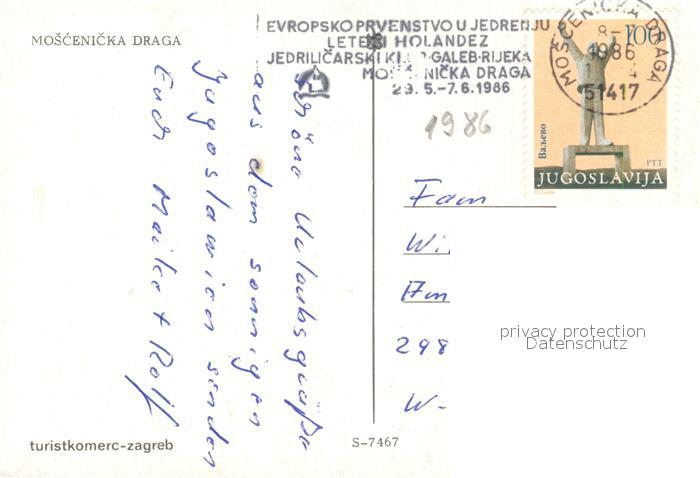 MOŠĆENIČKA DRAGA
EVROPSKO PRVENSTVO U JEDRENJU
LETEĆI HOLANDEZ
JEDRILIČARSKI KLUB GALEB-RIJEKA
MOŠĆENIČKA DRAGA
29.5.-7.6.1986
MOŠĆENIČKA DRAGA
1986
51417
100
Ваљево
PTT
JUGOSLAVIJA
1986
Schöne Urlaubsgrüße
aus dem sonnigen
Jugoslawien senden
Euch Maike + Rolf
Fam
Wi
Am
298
W-
privacy protection
Datenschutz
turistkomerc-zagreb
S-7467